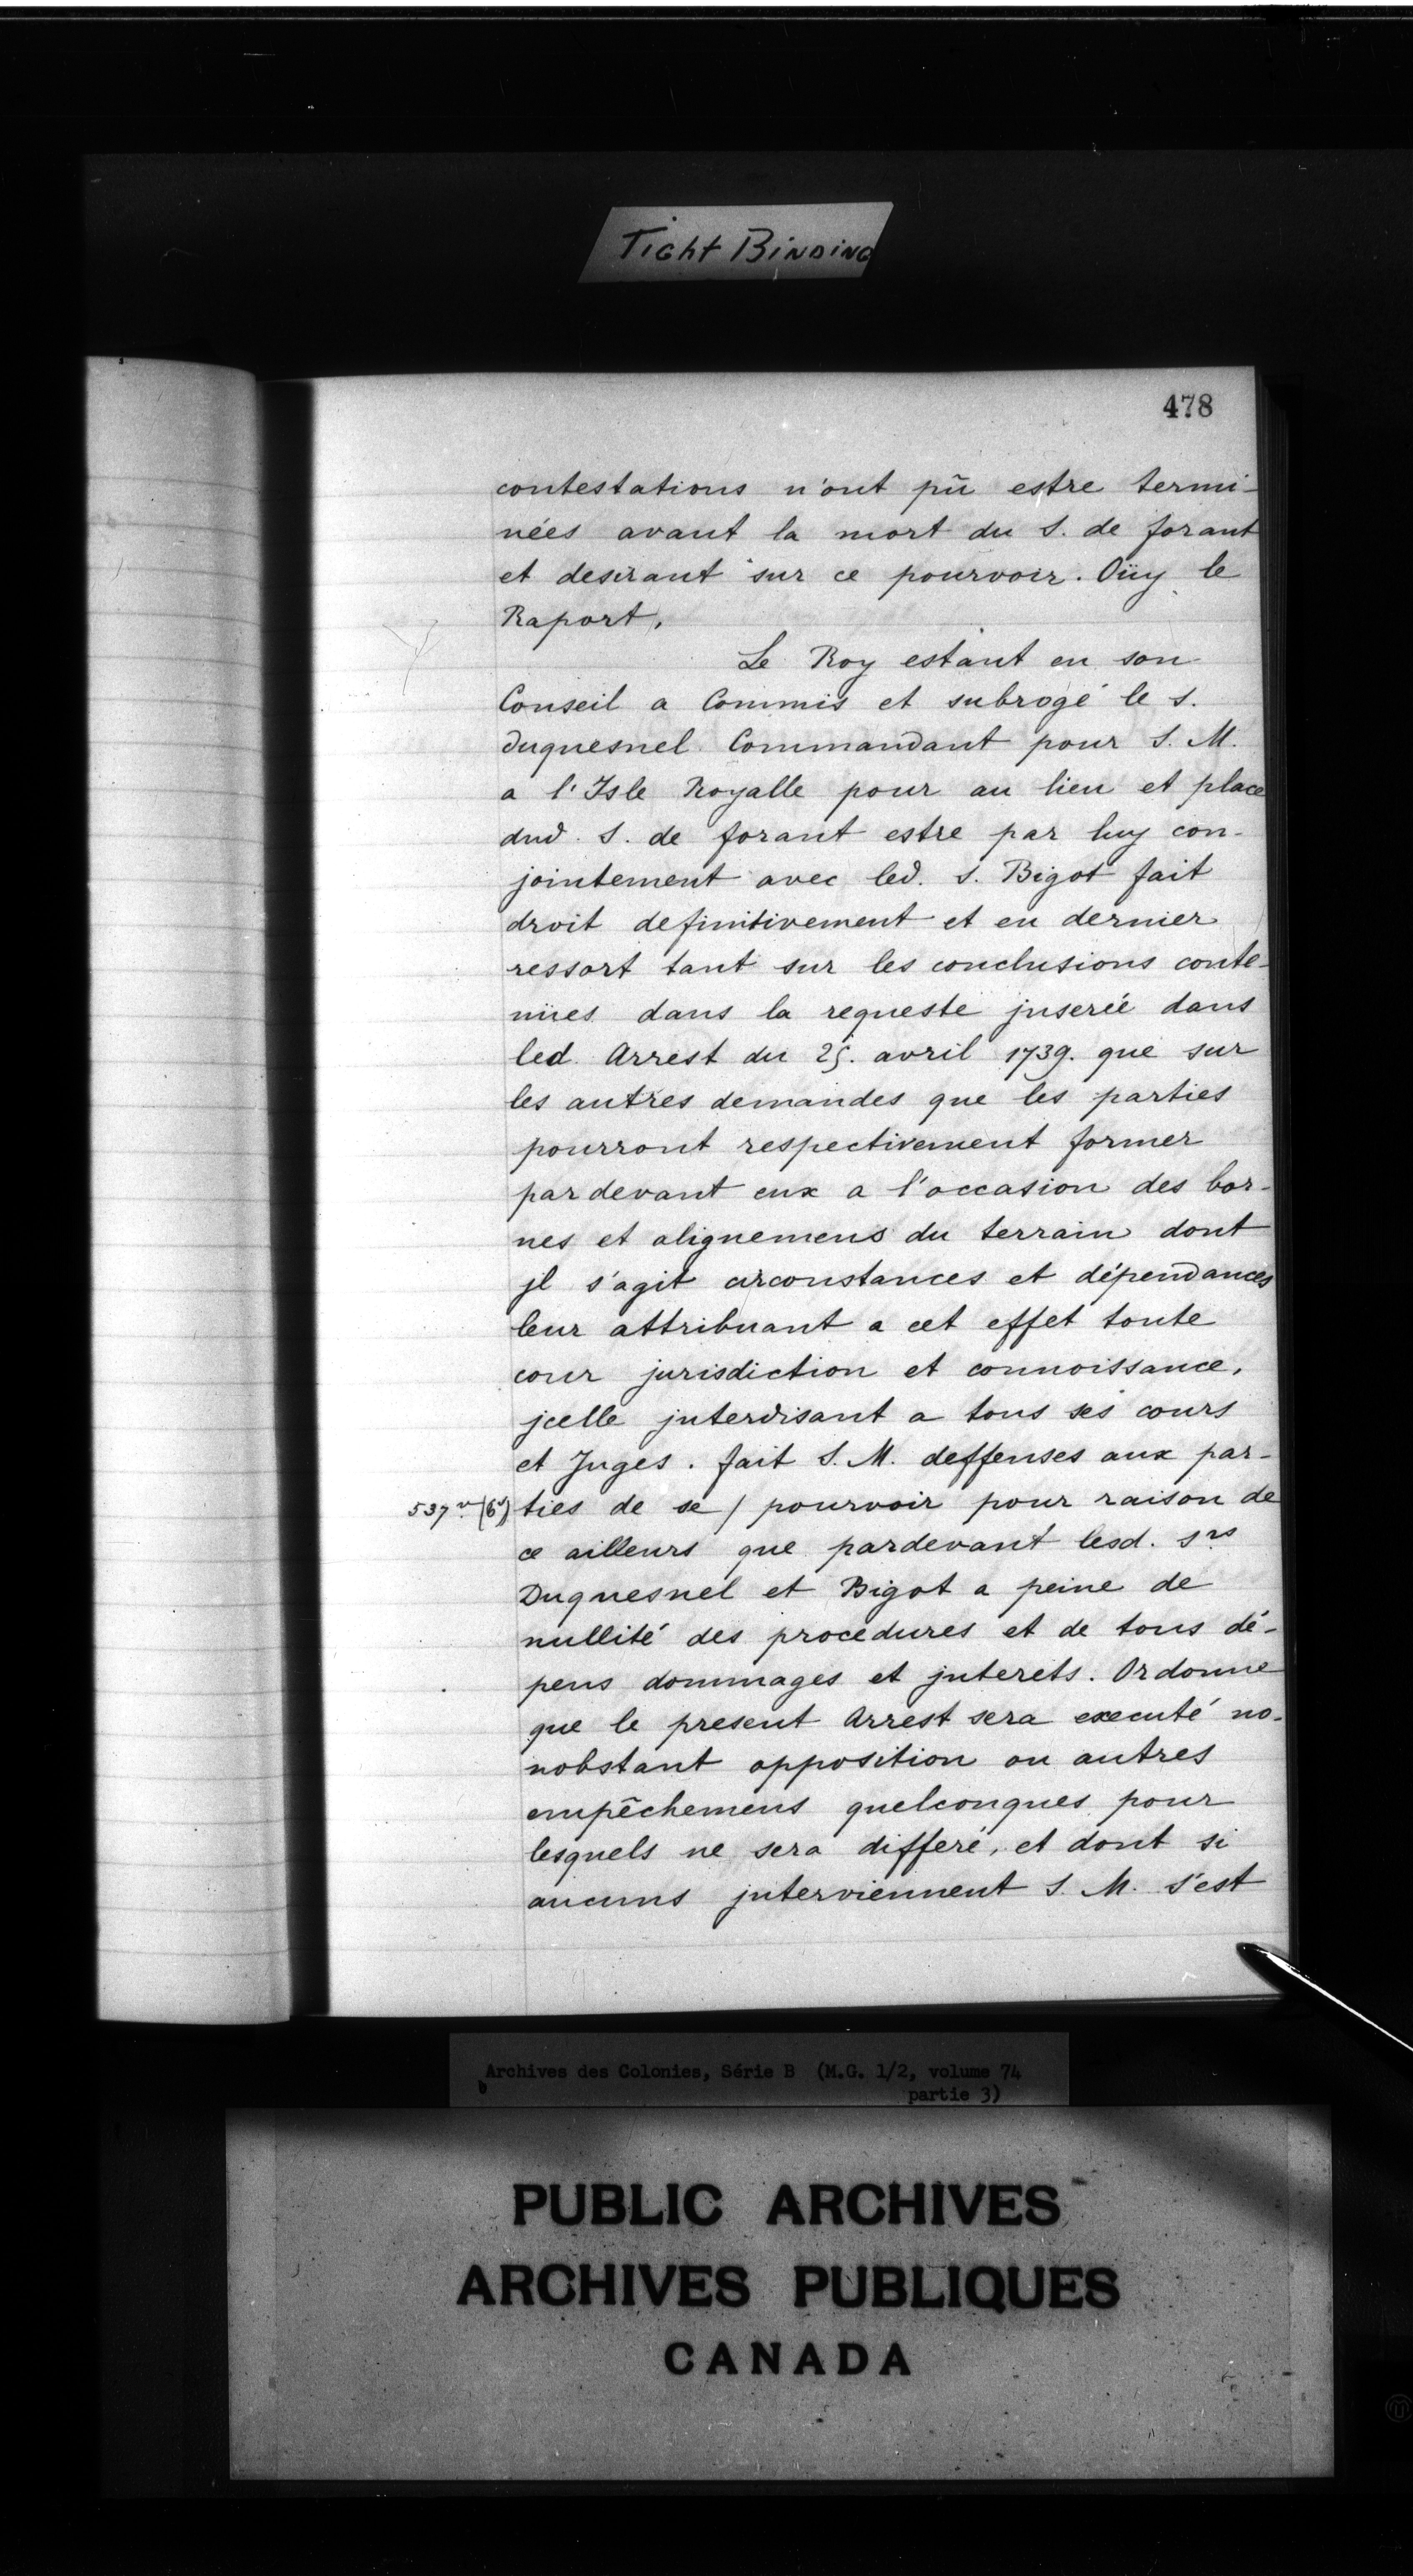 Tight Binding
478
contestations n'ont pû estre termi-
nées avant la mort du S. de forant
et desirant sur ce pourvoir. Oüy le
Raport,
Le Roy estant en son
Conseil a Commis et subrogé le S.
duquesnel Commandant pour S. M.
a l'Isle Royalle pour au lieu et place
dud. S. de forant estre par luy con-
jointement avec led. S. Bigot fait
droit definitivement et en dernier
ressort tant sur les conclusions conte-
nües dans la requeste jnserée dans
led. Arrest du 25. avril 1739. que sur
les autres demandes que les parties
pourront respectivement former
pardevant eux a l'occasion des bor-
nes et alignemens du terrain dont
jl s'agit circonstances et dépendances
leur attribuant a cet effet toute
cour jurisdiction et connoissance,
jcelle jnterdisant a tous ses cours
et Juges. fait S. M. deffenses aux par-
537 v (6) ties de se / pourvoir pour raison de
ce ailleurs que pardevant lesd. Srs
Duquesnel et Bigot a peine de
nullité des procedures et de tous dé-
pens dommages et jnterets. Ordonne
que le present Arrest sera executé no-
nobstant opposition ou autres
empêchemens quelconques pour
lesquels ne sera differé, et dont si
aucuns jnterviennent S. M. s'est
Archives des Colonies, Série B (M.G. 1/2, volume 74
partie 3)
PUBLIC ARCHIVES
ARCHIVES PUBLIQUES
CANADA